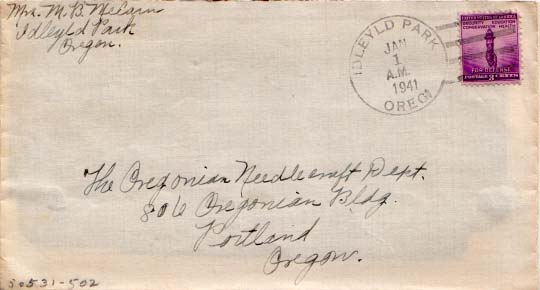 Mrs. M. B. McCarn
Idleyld Park
Oregon.
IDLEYLD PARK
JAN
1
A.M.
1941
OREG.
UNITED STATES OF AMERICA
SECURITY EDUCATION
CONSERVATION HEALTH
FOR DEFENSE
POSTAGE 3¢ CENTS
The Oregonian Needlecraft Dept.
806 Oregonian Bldg.
Portland
Oregon.
50531-502